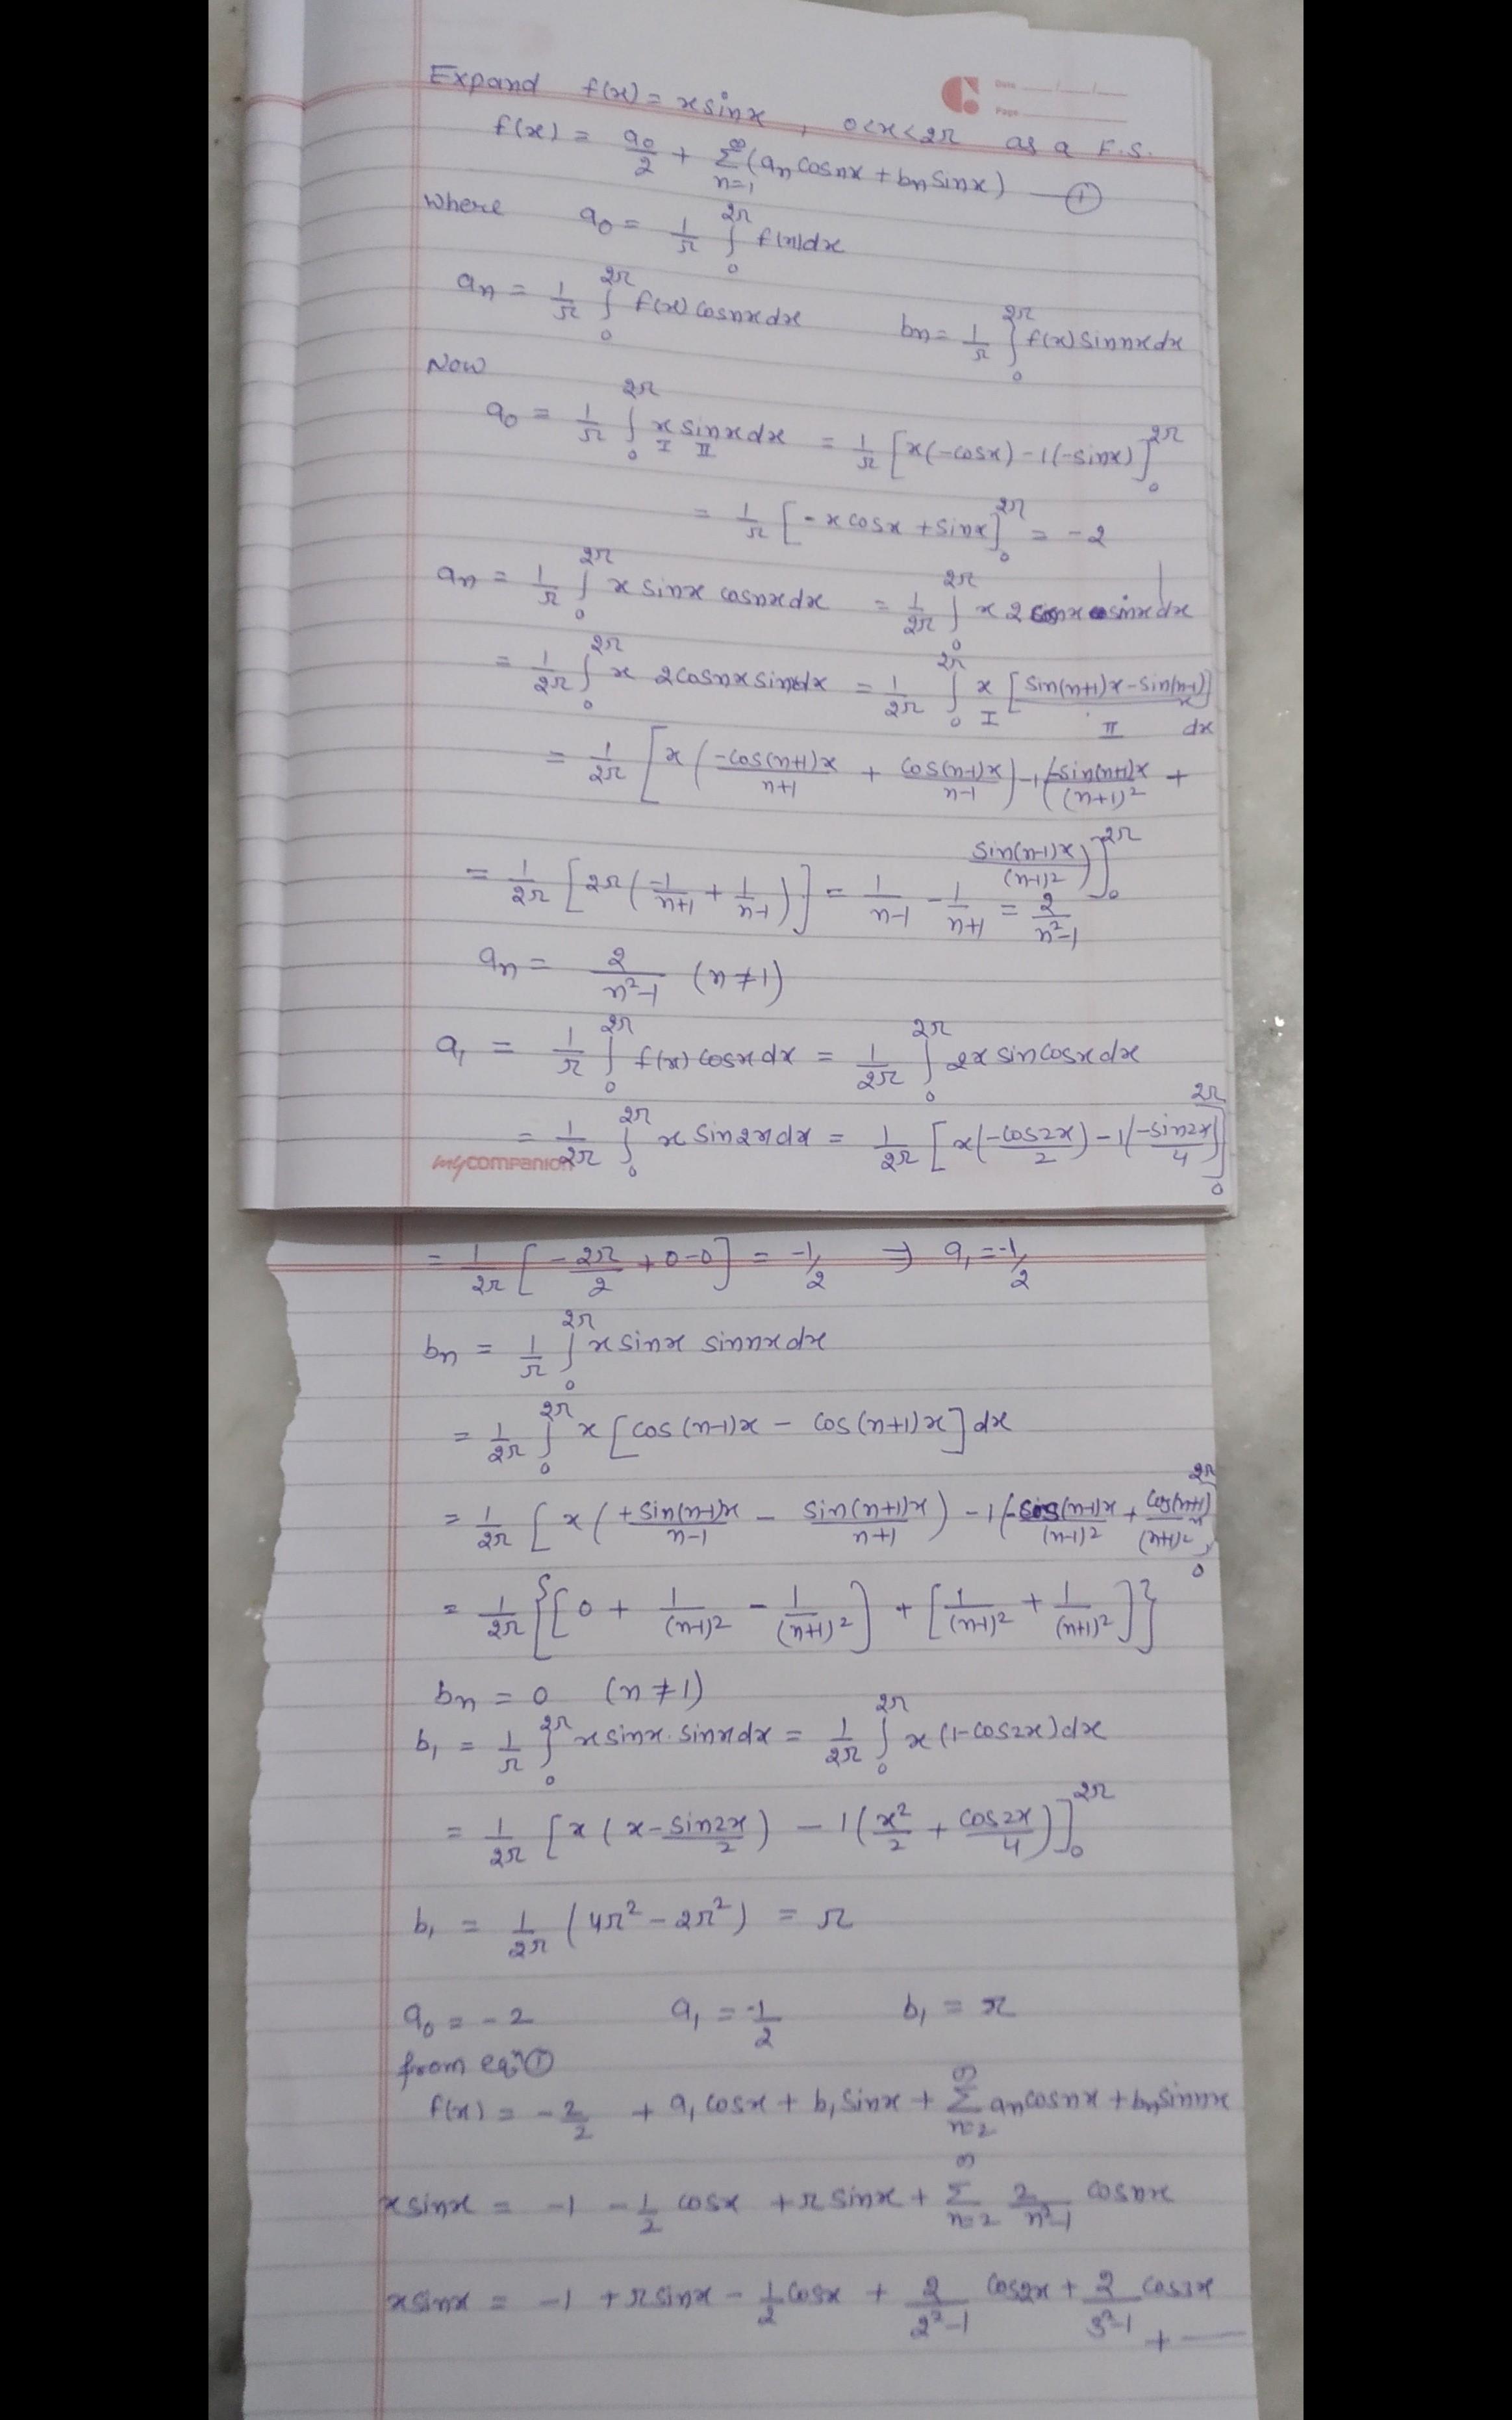 Expand f(x) = x sinx , 0<x<2π as a F.S.
Date ___/___/___
Page ___
f(x) = a₀/2 + Σ_{n=1}^{∞} (aₙ cosnx + bₙ sinx) — ①
where a₀ = 1/π ∫₀^{2π} f(x)dx
aₙ = 1/π ∫₀^{2π} f(x) cosnx dx bₙ = 1/π ∫₀^{2π} f(x) sinnx dx
Now
a₀ = 1/π ∫₀^{2π} x sinx dx = 1/π [x(-cosx) - 1(-sinx)]₀^{2π}
I II
= 1/π [-x cosx + sinx]₀^{2π} = -2
aₙ = 1/π ∫₀^{2π} x sinx cosnx dx = 1/2π ∫₀^{2π} x 2 cosnx sinx dx
= 1/2π ∫₀^{2π} x 2cosnx sinx dx = 1/2π ∫₀^{2π} x [sin(n+1)x - sin(n-1)x] dx
I II
= 1/2π [x(-cos(n+1)x/n+1 + cos(n-1)x/n-1) - 1(-sin(n+1)x/(n+1)² +
sin(n-1)x/(n-1)²)]₀^{2π}
= 1/2π [2π(-1/n+1 + 1/n-1)] = 1/n-1 - 1/n+1 = 2/n²-1
aₙ = 2/n²-1 (n≠1)
a₁ = 1/π ∫₀^{2π} f(x) cosx dx = 1/2π ∫₀^{2π} 2x sin cosx dx
= 1/2π ∫₀^{2π} x sin2x dx = 1/2π [x(-cos2x/2) - 1(-sin2x/4)]₀^{2π}
mycompanion
= 1/2π [-2π/2 + 0-0] = -1/2 ⇒ a₁ = -1/2
bₙ = 1/π ∫₀^{2π} x sinx sinnx dx
= 1/2π ∫₀^{2π} x [cos(n-1)x - cos(n+1)x] dx
= 1/2π [x(+sin(n-1)x/n-1 - sin(n+1)x/n+1) - 1(-cos(n-1)x/(n-1)² + cos(n+1)x/(n+1)²)]₀^{2π}
= 1/2π {[0 + 1/(n-1)² - 1/(n+1)²] + [1/(n-1)² + 1/(n+1)²]}
bₙ = 0 (n≠1)
b₁ = 1/π ∫₀^{2π} x sinx . sinx dx = 1/2π ∫₀^{2π} x (1-cos2x) dx
= 1/2π [x(x - sin2x/2) - 1(x²/2 + cos2x/4)]₀^{2π}
b₁ = 1/2π (4π² - 2π²) = π
a₀ = -2 a₁ = -1/2 b₁ = π
from eqⁿ ①
f(x) = -2/2 + a₁ cosx + b₁ sinx + Σ_{n=2}^{∞} aₙ cosnx + bₙ sinnx
x sinx = -1 - 1/2 cosx + π sinx + Σ_{n=2}^{∞} 2/n²-1 cosnx
x sinx = -1 + π sinx - 1/2 cosx + 2/2²-1 cos2x + 2/3²-1 cos3x + —